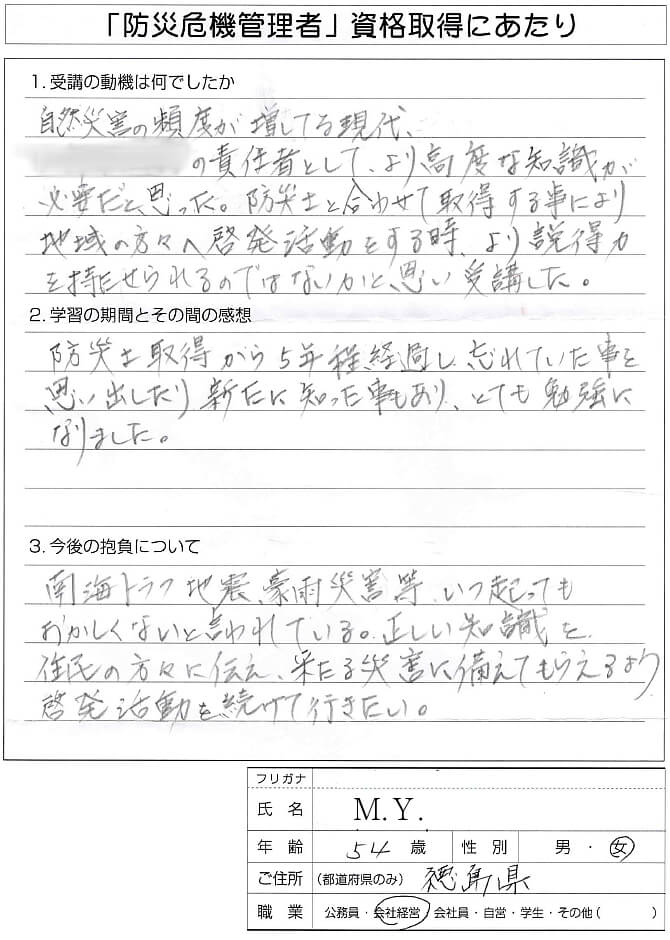 「防災危機管理者」資格取得にあたり
1. 受講の動機は何でしたか
自然災害の頻度が増してる現代、
の責任者として、より高度な知識が
必要だと思った。防災士と合わせて取得する事により
地域の方々へ啓発活動をする時、より説得力
を持たせられるのではないかと思い受講した。
2. 学習の期間とその間の感想
防災士取得から5年程経過し、忘れていた事を
思い出したり新たに知った事もあり、とても勉強に
なりました。
3. 今後の抱負について
南海トラフ地震、豪雨災害等、いつ起っても
おかしくないと言われている。正しい知識を
住民の方々に伝え、来たる災害に備えてもらえるよう
啓発活動を続けて行きたい。
フリガナ
氏名 M.Y.
年齢 54 歳 性別 男・女
ご住所 (都道府県のみ) 徳島県
職業 公務員・会社経営・会社員・自営・学生・その他( )